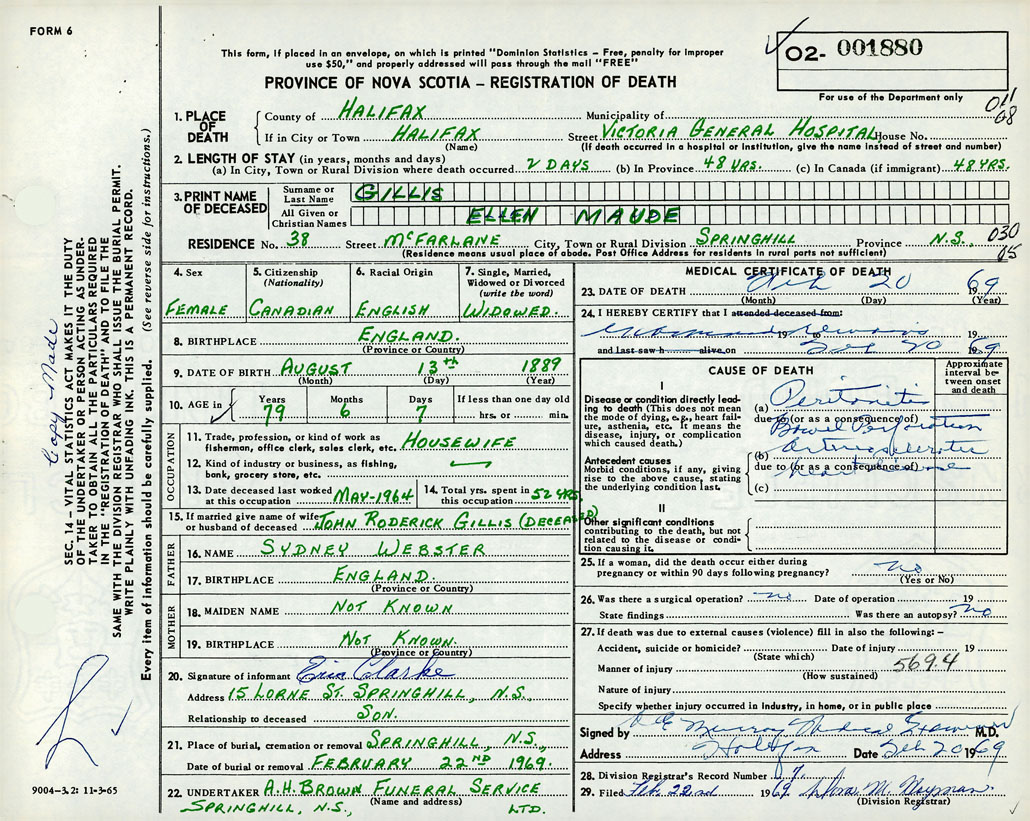 FORM 6
This form, if placed in an envelope, on which is printed "Dominion Statistics – Free, penalty for improper
use $50," and properly addressed will pass through the mail "FREE"
PROVINCE OF NOVA SCOTIA – REGISTRATION OF DEATH
02- 001880
For use of the Department only
011
08
1. PLACE OF DEATH
County of HALIFAX Municipality of
If in City or Town HALIFAX Street VICTORIA GENERAL HOSPITAL House No.
(Name) (If death occurred in a hospital or institution, give the name instead of street and number)
2. LENGTH OF STAY (in years, months and days)
(a) In City, Town or Rural Division where death occurred 2 DAYS (b) In Province 48 YRS. (c) In Canada (if immigrant) 48 YRS.
3. PRINT NAME OF DECEASED
Surname or Last Name GILLIS
All Given or Christian Names ELLEN MAUDE
RESIDENCE No. 38 Street McFARLANE City, Town or Rural Division SPRINGHILL Province N.S. 030
(Residence means usual place of abode. Post Office Address for residents in rural parts not sufficient) 05
4. Sex FEMALE
5. Citizenship (Nationality) CANADIAN
6. Racial Origin ENGLISH
7. Single, Married, Widowed or Divorced (write the word) WIDOWED.
8. BIRTHPLACE ENGLAND.
(Province or Country)
9. DATE OF BIRTH AUGUST 13th 1889
(Month) (Day) (Year)
10. AGE in Years 79 Months 6 Days 7 If less than one day old
hrs. or min.
OCCUPATION
11. Trade, profession, or kind of work as
fisherman, office clerk, sales clerk, etc. HOUSEWIFE
12. Kind of industry or business, as fishing,
bank, grocery store, etc.
13. Date deceased last worked
at this occupation MAY-1964
14. Total yrs. spent in
this occupation 52 YRS.
15. If married give name of wife
or husband of deceased JOHN RODERICK GILLIS (DECEASED)
FATHER
16. NAME SYDNEY WEBSTER
17. BIRTHPLACE ENGLAND.
(Province or Country)
MOTHER
18. MAIDEN NAME NOT KNOWN
19. BIRTHPLACE NOT KNOWN.
(Province or Country)
20. Signature of informant Eric Clarke
Address 15 LORNE ST. SPRINGHILL, N.S.
Relationship to deceased SON.
21. Place of burial, cremation or removal SPRINGHILL, N.S.,
Date of burial or removal FEBRUARY 22ND 1969.
22. UNDERTAKER A.H. BROWN FUNERAL SERVICE
(Name and address)
SPRINGHILL, N.S., LTD.
MEDICAL CERTIFICATE OF DEATH
23. DATE OF DEATH Feb 20 1969
(Month) (Day) (Year)
24. I HEREBY CERTIFY that I attended deceased from:
19 to
and last saw h alive on Feb 20 1969
CAUSE OF DEATH
Approximate interval between onset and death
I
Disease or condition directly leading to death (This does not mean
the mode of dying, e.g., heart failure, asthenia, etc. It means the
disease, injury, or complication
which caused death.)
(a) Peritonitis
due to (or as a consequence of)
Bowel Perforation
Antecedent causes
Morbid conditions, if any, giving
rise to the above cause, stating
the underlying condition last.
(b)
due to (or as a consequence of)
(c)
II
Other significant conditions
contributing to the death, but not
related to the disease or condition causing it.
25. If a woman, did the death occur either during
pregnancy or within 90 days following pregnancy? no
(Yes or No)
26. Was there a surgical operation? no Date of operation 19
State findings Was there an autopsy? no
27. If death was due to external causes (violence) fill in also the following: –
Accident, suicide or homicide? Date of injury 19
(State which)
Manner of injury 569.4
(How sustained)
Nature of injury
Specify whether injury occurred in industry, in home, or in public place
Signed by Murray Medical Examiner M.D.
Address Halifax Date Feb 20 1969
28. Division Registrar's Record Number
29. Filed Feb. 22nd 1969
(Division Registrar)
SEC. 14 – VITAL STATISTICS ACT MAKES IT THE DUTY
OF THE UNDERTAKER OR PERSON ACTING AS UNDER-
TAKER TO OBTAIN ALL THE PARTICULARS REQUIRED
IN THE "REGISTRATION OF DEATH" AND TO FILE THE
SAME WITH THE DIVISION REGISTRAR WHO SHALL ISSUE THE BURIAL PERMIT.
WRITE PLAINLY WITH UNFADING INK. THIS IS A PERMANENT RECORD.
Every item of information should be carefully supplied. (See reverse side for instructions.)
Copy Made
9004-3.2: 11-3-65